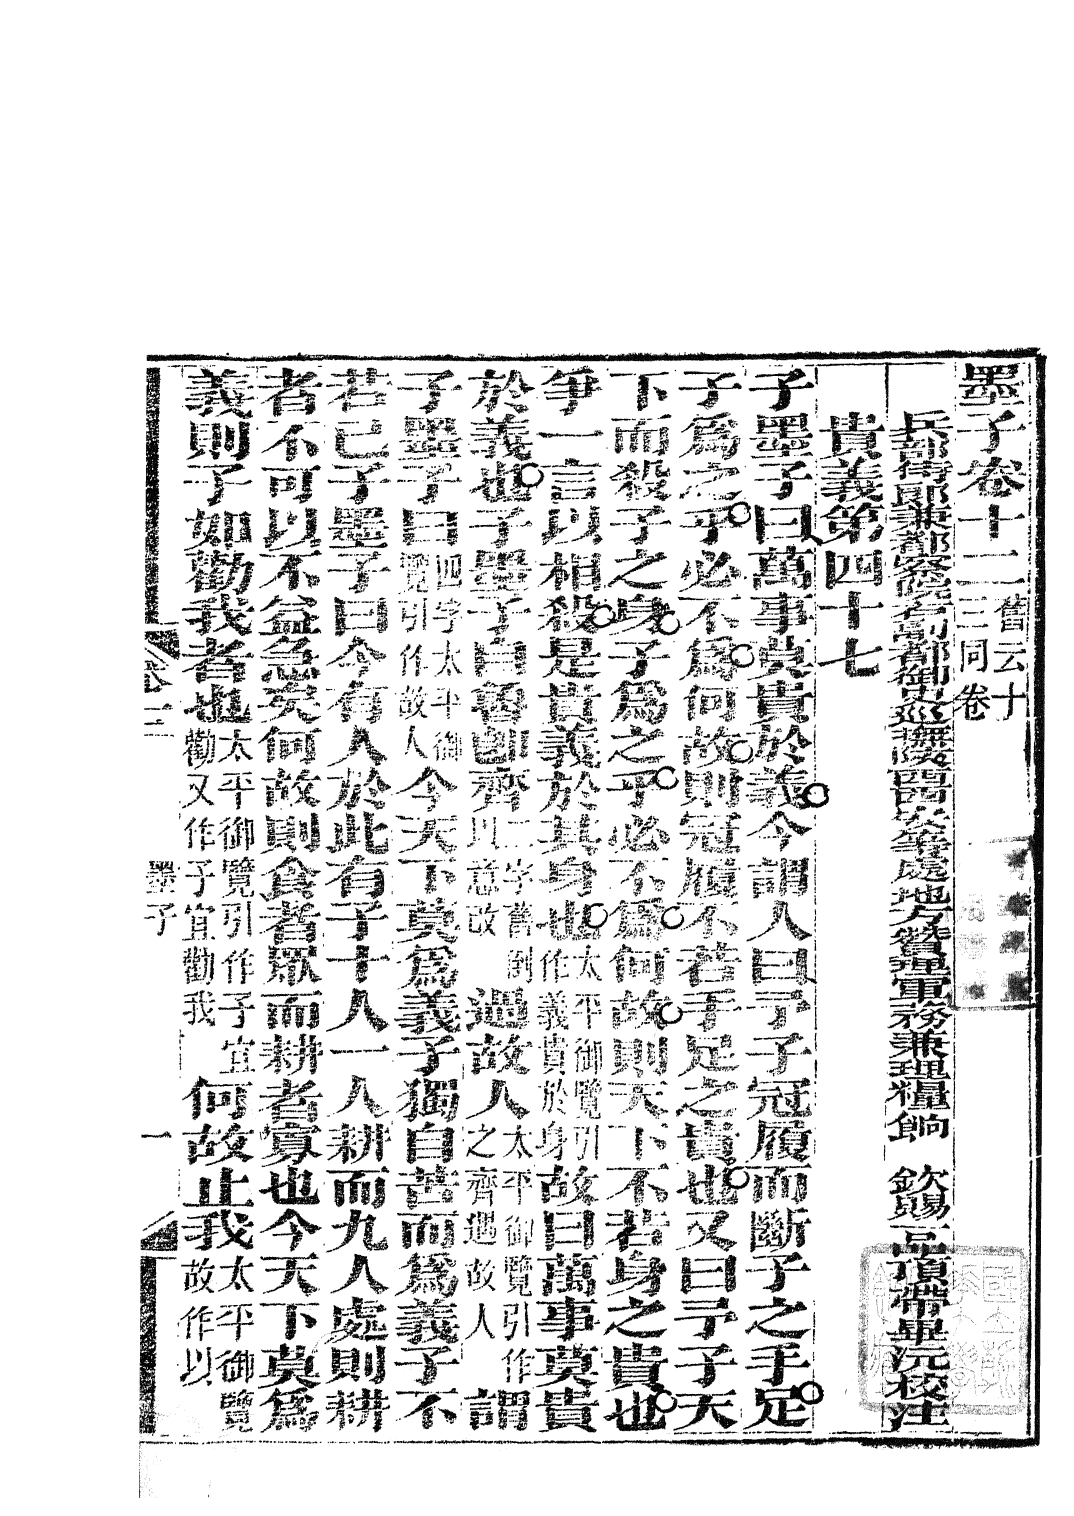 墨子卷十二舊云十三同卷
兵部侍郎兼都察院右副都御史巡撫陝西西安等處地方贊理軍務兼理糧餉　欽賜一品頂帶畢沅校注
貴義第四十七
子墨子曰萬事莫貴於義今謂人曰予子冠履而斷子之手足
子爲之乎必不爲何故則冠履不若手足之貴也又曰予子天
下而殺子之身子爲之乎必不爲何故則天下不若身之貴也
爭一言以相殺是貴義於其身也太平御覽引作義貴於身故曰萬事莫貴
於義也子墨子自魯卽齊二字舊倒以意改過故人太平御覽引作之齊遇故人謂
子墨子曰四字太平御覽引作故人今天下莫爲義子獨自苦而爲義子不
若已子墨子曰今有人於此有子十人一人耕而九人處則耕
者不可以不益急矣何故則食者眾而耕者寡也今天下莫爲
義則子如勸我者也太平御覽引作子宜勸又作子宜勸我何故止我太平御覽故作以
卷十二
墨子
一